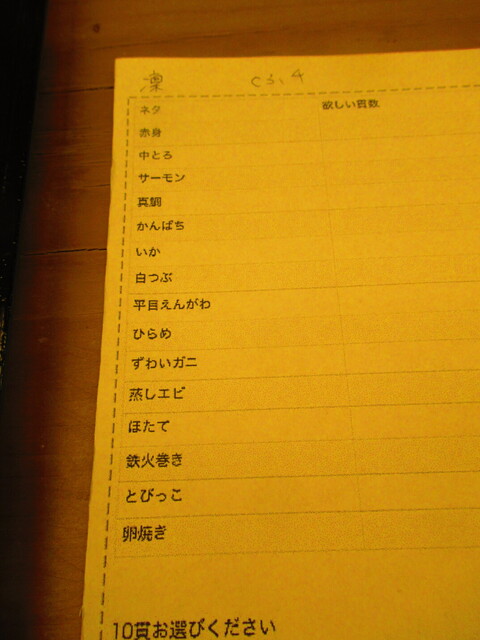 凛
ネタ 欲しい貫数
赤身
中とろ
サーモン
真鯛
かんぱち
いか
白つぶ
平目えんがわ
ひらめ
ずわいガニ
蒸しエビ
ほたて
鉄火巻き
とびっこ
卵焼き
10貫お選びください